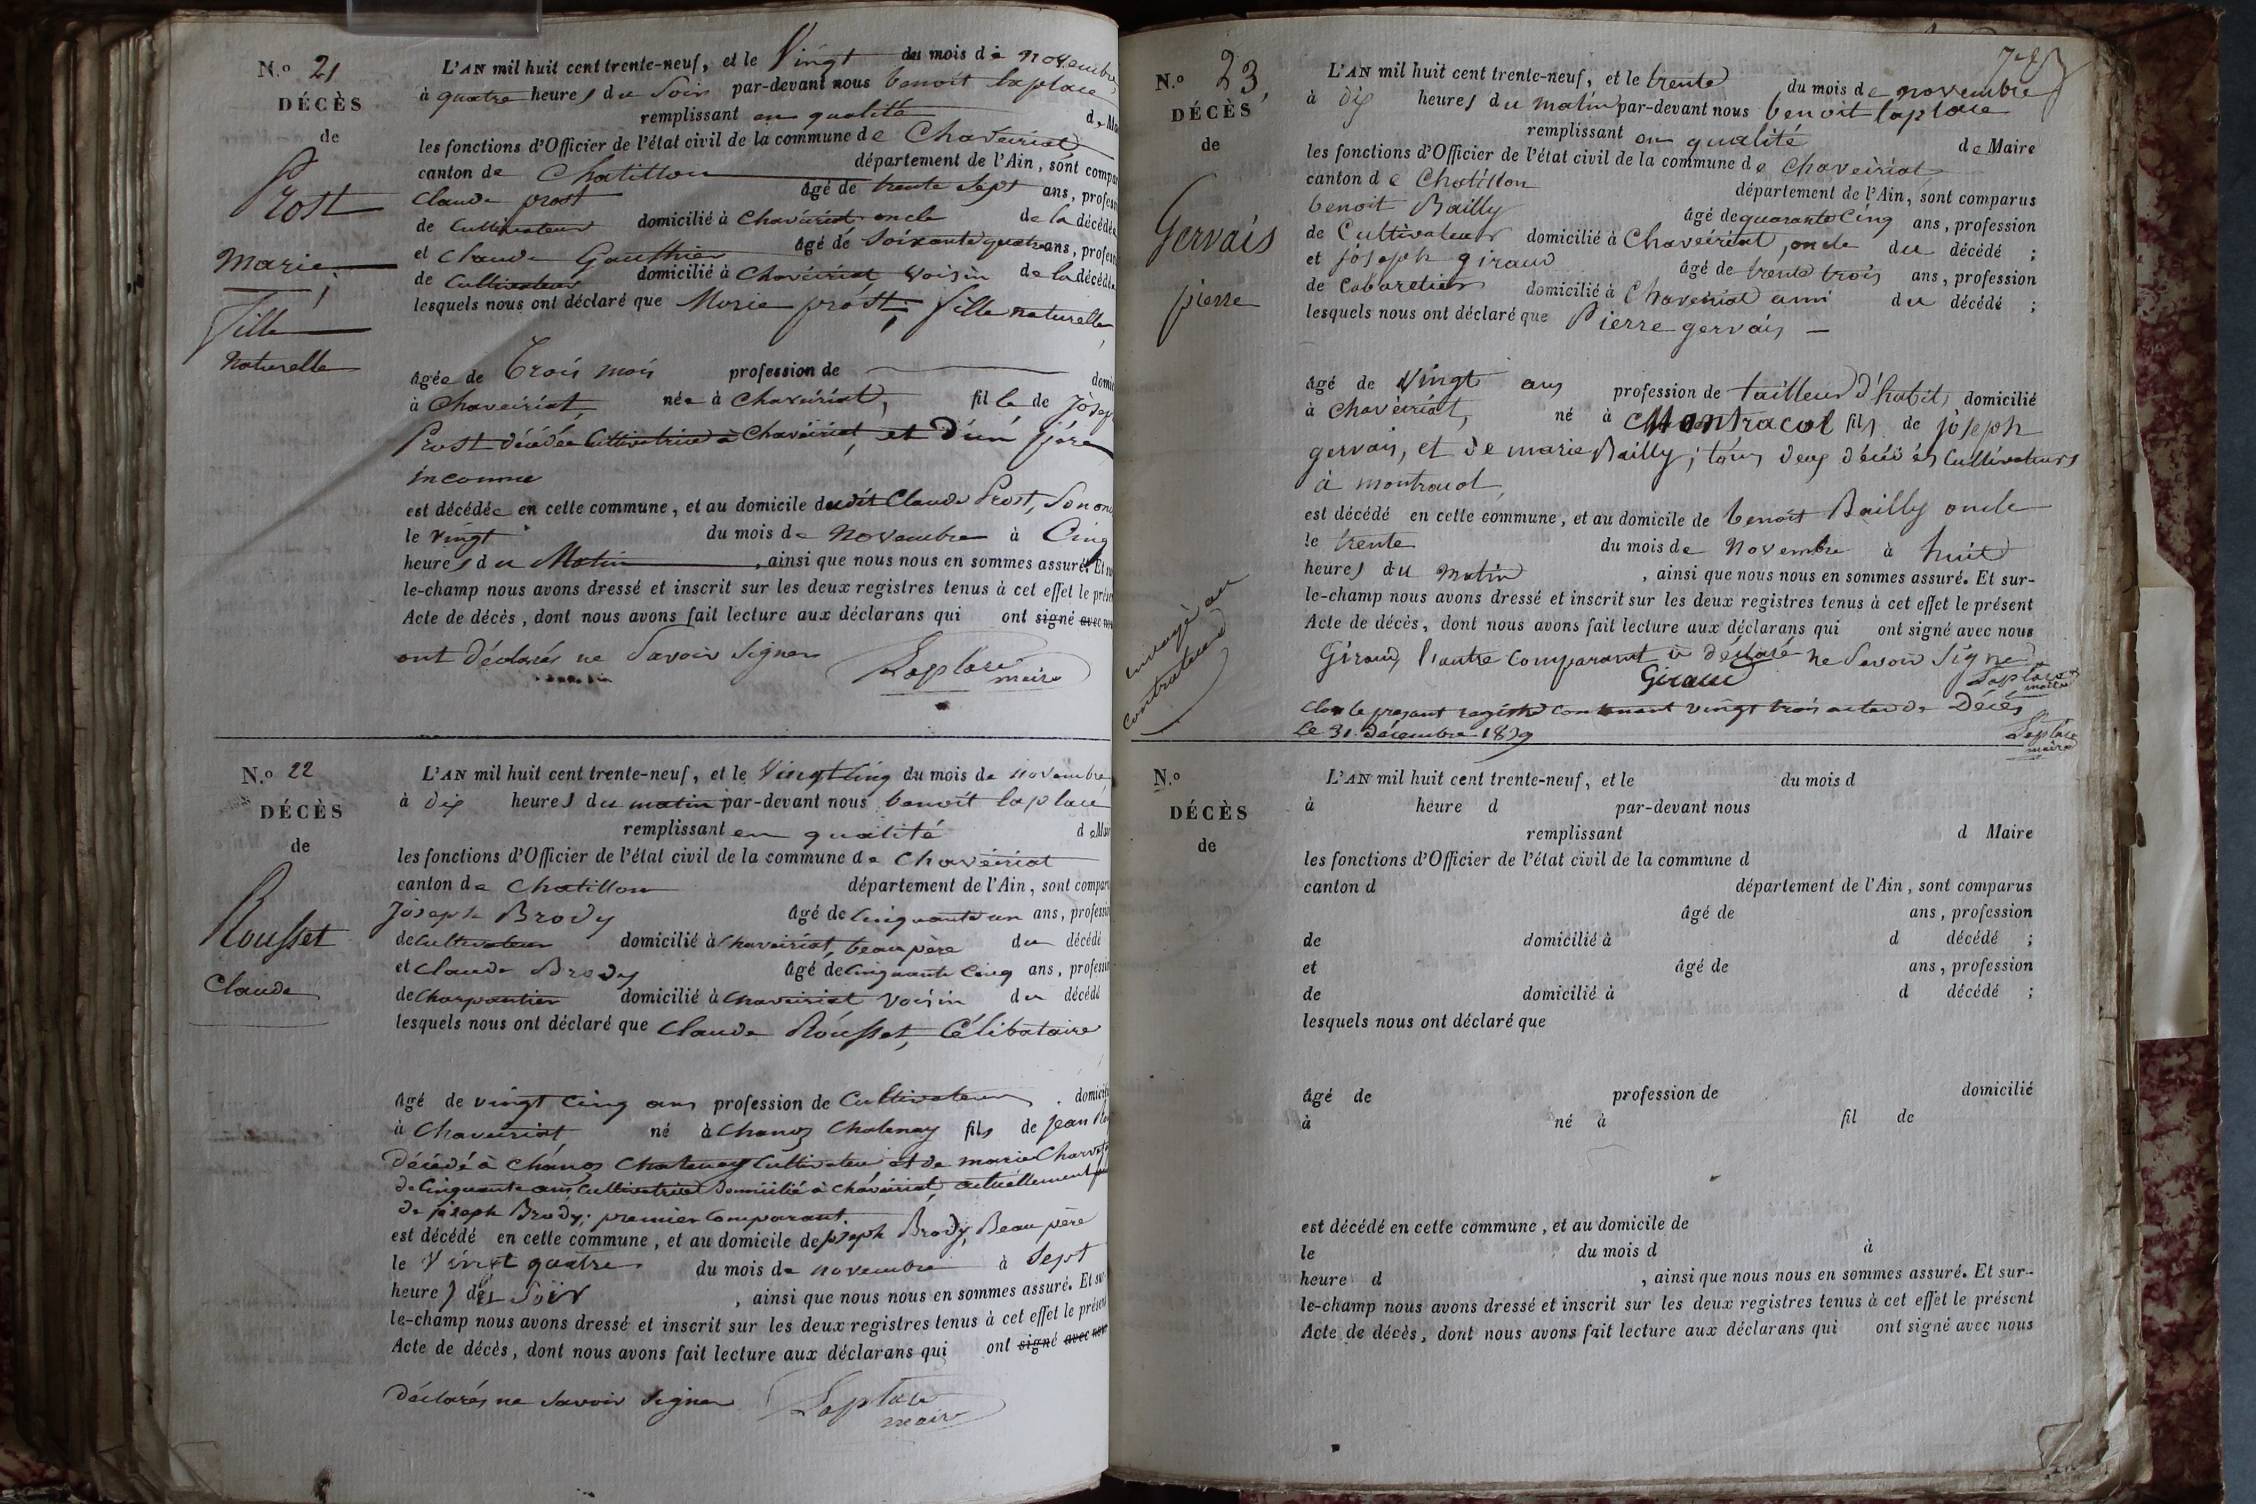 N.º 21
DÉCÈS
de
Prost
Marie
fille
Naturelle
L'AN mil huit cent trente-neuf, et le Vingt du mois de novembre
à quatre heures du Soir par-devant nous benoit laplace
remplissant en qualité de Ma
les fonctions d'Officier de l'état civil de la commune de Chaveiriat
canton de Chatillon département de l'Ain, sont compar
Claude prost âgé de trente Sept ans, profess
de Cultivateur domicilié à Chaveiriat oncle de la décédée
et Claude Gauthier âgé de Soixante quatre ans, profess
de Cultivateur domicilié à Chaveiriat, voisin de la décédée
lesquels nous ont déclaré que Marie prost, fille naturelle
âgée de Trois mois profession de domic
à Chaveiriat, née à Chaveiriat, fille de Josep
Prost décédée Cultivatrice à Chaveiriat, et d'un père
inconnue
est décédée en cette commune, et au domicile dudit Claude Prost, Son onc
le vingt du mois de Novembre à Cinq
heures du Matin, ainsi que nous nous en sommes assuré. Et su
le-champ nous avons dressé et inscrit sur les deux registres tenus à cet effet le prése
Acte de décès, dont nous avons fait lecture aux déclarans qui ont signé avec nou
ont déclarés ne Savoir Signer Laplace
maire
N.º 22
DÉCÈS
de
Rousset
Claude
L'AN mil huit cent trente-neuf, et le Vingt Cinq du mois de novembre
à dix heures du matin par-devant nous benoit laplace
remplissant en qualité de Mai
les fonctions d'Officier de l'état civil de la commune de Chaveiriat
canton de Chatillon département de l'Ain, sont comparu
Joseph Brody âgé de Cinquante un ans, professio
de Cultivateur domicilié à Chaveiriat, beau père du décédé
et Claude Brody âgé de Cinquante Cinq ans, professio
de Charpentier domicilié à Chaveiriat voisin du décédé
lesquels nous ont déclaré que Claude Rousset, Célibataire
âgé de vingt Cinq ans profession de Cultivateur, domicili
à Chaveiriat, né à Chanoz Chatenay fils de Jean
Décédé à Chanoz Chatenay Cultivateur et de marie
de Cinquante ans Cultivatrice domicilié à Chaveiriat, actuellement
de joseph Brody; premier Comparant.
est décédé en cette commune, et au domicile de joseph Brody, Beau père
le Vingt quatre du mois de novembre à Sept
heures du Soir, ainsi que nous nous en sommes assuré. Et su
le-champ nous avons dressé et inscrit sur les deux registres tenus à cet effet le présen
Acte de décès, dont nous avons fait lecture aux déclarans qui ont signé avec nous
déclarés ne Savoir Signer Laplace
maire
N.º 23
DÉCÈS
de
Gervais
pierre
L'AN mil huit cent trente-neuf, et le trente du mois de novembre
à dix heures du matin par-devant nous benoit laplace
remplissant en qualité de Maire
les fonctions d'Officier de l'état civil de la commune de Chaveiriat
canton de Chatillon département de l'Ain, sont comparus
benoit Bailly âgé de quarante Cinq ans, profession
de Cultivateur domicilié à Chaveiriat, oncle du décédé ;
et joseph giraud âgé de trente trois ans, profession
de Cabaretier domicilié à Chaveiriat ami du décédé ;
lesquels nous ont déclaré que Pierre gervais
âgé de Vingt ans profession de tailleur d'habit, domicilié
à Chaveiriat, né à Montracol fils de joseph
gervais, et de marie Bailly; tous deux décédés Cultivateurs
à montracol,
est décédé en cette commune, et au domicile de benoit Bailly oncle
le trente du mois de Novembre à huit
heures du matin, ainsi que nous nous en sommes assuré. Et sur-
le-champ nous avons dressé et inscrit sur les deux registres tenus à cet effet le présent
Acte de décès, dont nous avons fait lecture aux déclarans qui ont signé avec nous
Giraud, l'autre Comparant a déclaré ne Savoir Signe
Giraud Laplace
maire
Clos le present registre Contenant vingt trois actes de Décès
Le 31 décembre 1839
Laplace
maire
N.º
DÉCÈS
de
L'AN mil huit cent trente-neuf, et le du mois d
à heure d par-devant nous
remplissant d Maire
les fonctions d'Officier de l'état civil de la commune d
canton d département de l'Ain, sont comparus
âgé de ans, profession
de domicilié à d décédé ;
et âgé de ans, profession
de domicilié à d décédé ;
lesquels nous ont déclaré que
âgé de profession de domicilié
à né à fil de
est décédé en cette commune, et au domicile de
le du mois d à
heure d , ainsi que nous nous en sommes assuré. Et sur-
le-champ nous avons dressé et inscrit sur les deux registres tenus à cet effet le présent
Acte de décès, dont nous avons fait lecture aux déclarans qui ont signé avec nous